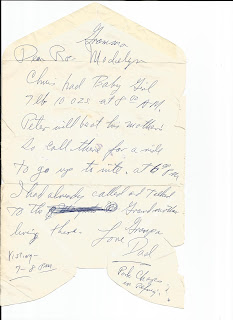 Gramma
Dear Ro- Madelyn
Chris had Baby Girl
7 lb 10 ozs at 8 @ A.M.
Peter will beat his mother
So call there for a
to go up to nite, at 6 PM
I had already called and talked
To the Grandmother
living there. Love Grampa
Dad
Visiting
7-8 PM
Park Chage
on